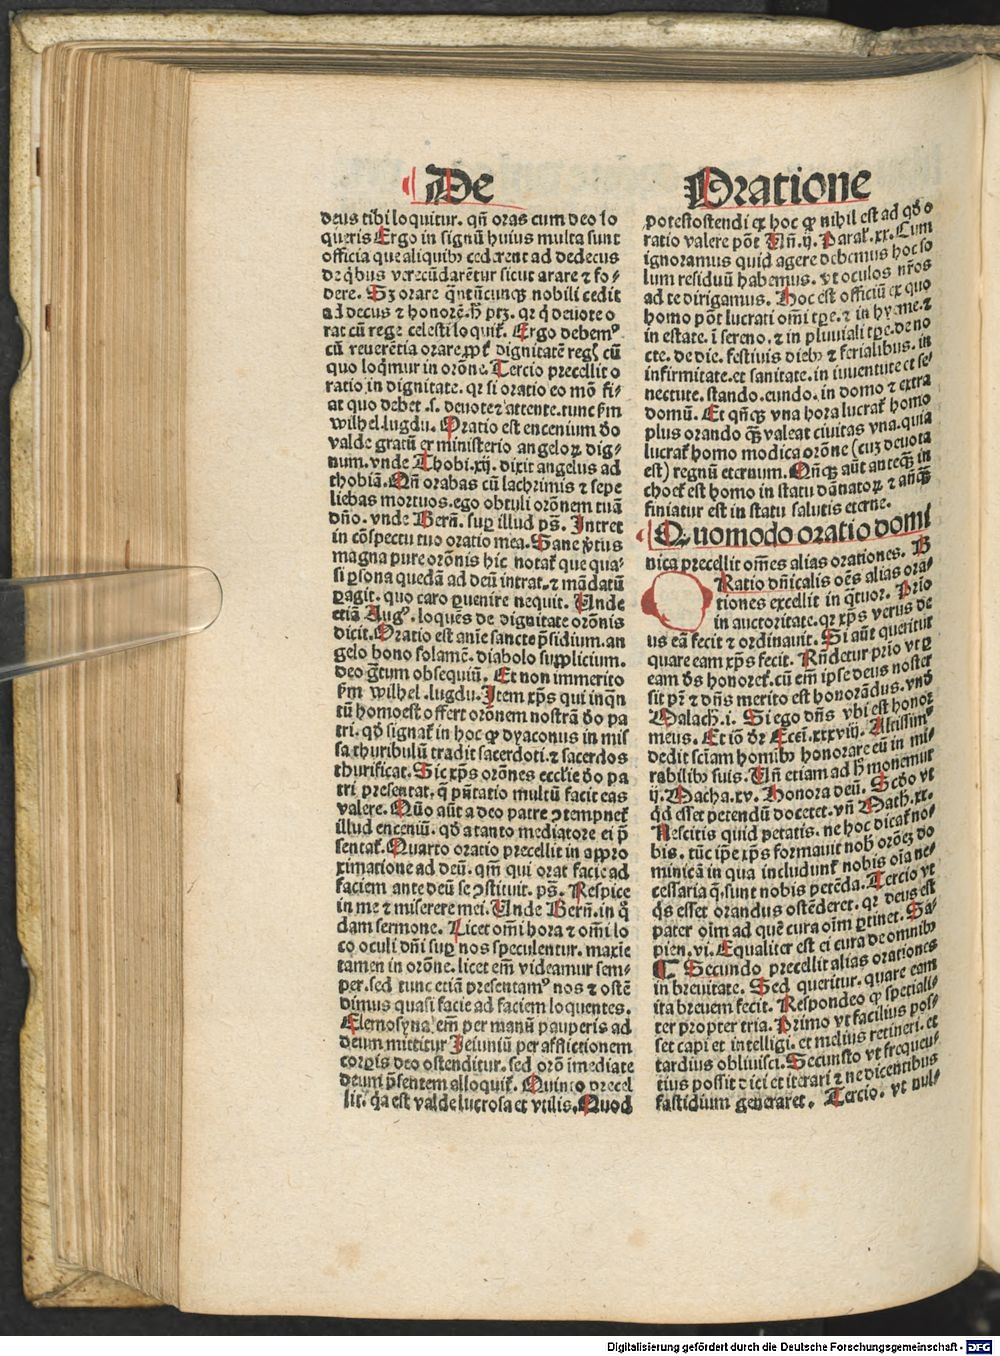 De
deus tibi loquitur. qñ oras cum deo lo
queris Ergo in signū huius multa sunt
officia que aliquibꝰ cederent ad dedecus
de q̇bus verecūdarētur sicut arare ⁊ fo⸗
dere. Sꝫ orare q̈ntūcunqꝫ nobili cedit
ad decus ⁊ honorē. ħ ptꝫ. qꝛ q̇ deuote o
rat cū rege celesti loquiť. Ergo debemꝰ
cū reuerētia orare ꝓpť dignitatē regꝭ cū
quo loq̇mur in orōne. Tercio precellit o
ratio in dignitate. qꝛ si oratio eo mō fi⸗
at quo debet .s. deuote ⁊ attente. tunc ẜm
wilhel. lugdu. Oratio est encenium ď̄o
valde gratū ex ministerio angeloꝝ dig⸗
num. vnde Thobi. xij. dixit angelus ad
thobiā. Qñ orabas cū lachrimis ⁊ sepe
liebas mortuos. ego obtuli orōnem tuā
dño. vnde Berñ. suꝑ illud ps̄. Intret
in cōspectu tuo oratio mea. Sane ṽtus
magna pure orōnis hic notať que qua⸗
si ꝑsona quedā ad deū intrat. ⁊ mādatū
ꝑagit. quo caro ꝑuenire nequit. Unde
etiā Augꝰ. loquēs de dignitate orōnis
dicit. Oratio est anīe sancte p̄sidium. an
gelo bono solamē. diabolo supplicium.
deo g̈tum obsequiū. Et non immerito
ẜm wilhel. lugdu. Item xp̄s qui inq̈n
tū homo est offert orōnem nostrā ď̄o pa
tri. qď signať in hoc ꝙ dyaconus in mis
sa thuribulū tradit sacerdoti. ⁊ sacerdos
thurificat. Sic xp̄s orōnes eccłie ď̄o pa
tri presentat. q̄ p̄ñtatio multū facit eas
valere. Quō aūt a deo patre ↄtempneť
illud enceniū. qď a tanto mediatore ei p̄
sentať. Quarto oratio precellit in appro
ximatione ad deū. qm̄ qui orat facie ad
faciem ante deū se ↄstituit. ps̄. Respice
in me ⁊ miserere mei. Unde Berñ. in q̇
dam sermone. Licet om̄i hora ⁊ om̄i lo
co oculi dñi suꝑ nos speculentur. maxīe
tamen in orōne. licet em̄ videamur sem⸗
per. sed tunc etiā presentamꝰ nos ⁊ ostē
dimus quasi facie ad faciem loquentes.
Elemosyna em̄ per manū pauperis ad
deum mittitur Ieiuniū per afflictionem
corpis deo ostenditur. sed orō imediate
deum p̄sentem alloquiť. Quinto precel
lit. q̇a est valde lucrosa et vtilis. Quod
Oratione
potest ostendi ex hoc ꝙ nihil est ad qď o
ratio valere pōt Uñ. ij. Paral. xx. Cum
ignoramus quid agere debemus hoc so
lum residuū habemus. vt oculos nr̄os
ad te dirigamus. Hoc est officiū ex quo
homo pōt lucrati om̄i tp̄e. ⁊ in hyeme. ⁊
in estate. ī sereno. ⁊ in pluuiali tp̄e. de no
cte. de die. festiuis diebꝰ ⁊ ferialibus. in
infirmitate. et sanitate. in iuuentute et se⸗
nectute. stando. eundo. in domo ⁊ extra
domū. Et qñqꝫ vna hora lucrať homo
plus orando q̈ꝫ valeat ciuitas vna. quia
lucrať homo modica orōne (cuꝫ deuota
est) regnū eternum. Qñqꝫ aūt anteq̈ꝫ in
choeť est homo in statu dānatoꝝ ⁊ anteq̈ꝫ
finiatur est in statu salutis eterne.
Quomodo oratio domi
nica precellit om̄es alias orationes. B
Ratio dñicalis oēs alias ora⸗
tiones excellit in q̈tuor. Prīo
in auctoritate. qꝛ xp̄s verus de
us eā fecit ⁊ ordinauit. Si aūt queritur
quare eam xp̄s fecit. Rñdetur prīo vt ꝑ
eam ď̄s honoreť. cū em̄ ipse deus noster
sit pr̄ ⁊ dñs merito est honorādus. vnď
Malacħ. i. Si ego dñs vbi est honor
meus. Et iō dr̄ Eccī. xxxviij. Altissimꝰ
dedit scīam homībꝰ honorare eū in mi⸗
rabilibꝰ suis. Uñ etiam ad ħ monemur
ij. Macha. xv. Honora deū. Scďo vt
q̇d esset petendū doceret. vñ Math. xx.
Nescitis quid petatis. ne hoc dicať no⸗
bis. tūc ip̄e xp̄s formauit nob̄ orōeꝫ do
minicā in qua includunť nobis oīa ne⸗
cessaria q̄. sunt nobis petēda. Tercio vt
q̇s esset orandus ostēderet. qꝛ deus est
pater oīm ad quē cura oīm ꝑtinet. Sa⸗
pien. vi. Equaliter est ei cura de omnibꝰ
¶ Secundo precellit alias orationes
in breuitate. Sed queritur. quare eam
ita breuem fecit. Respondeo ꝙ speciali⸗
ter propter tria. Primo vt facilius pos⸗
set capi et intelligi. et melius retineri. et
tardius obliuisci. Secundo vt frequen⸗
tius possit dici et iterari ⁊ ne dicentibus
fastidium generaret. Tercio. vt nul⸗
Digitalisierung gefördert durch die Deutsche Forschungsgemeinschaft - DFG